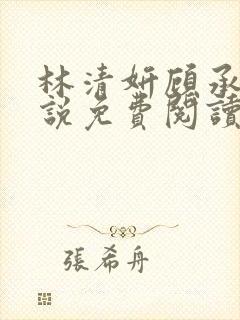 林清妍顾承
說免費閱讀
張希舟